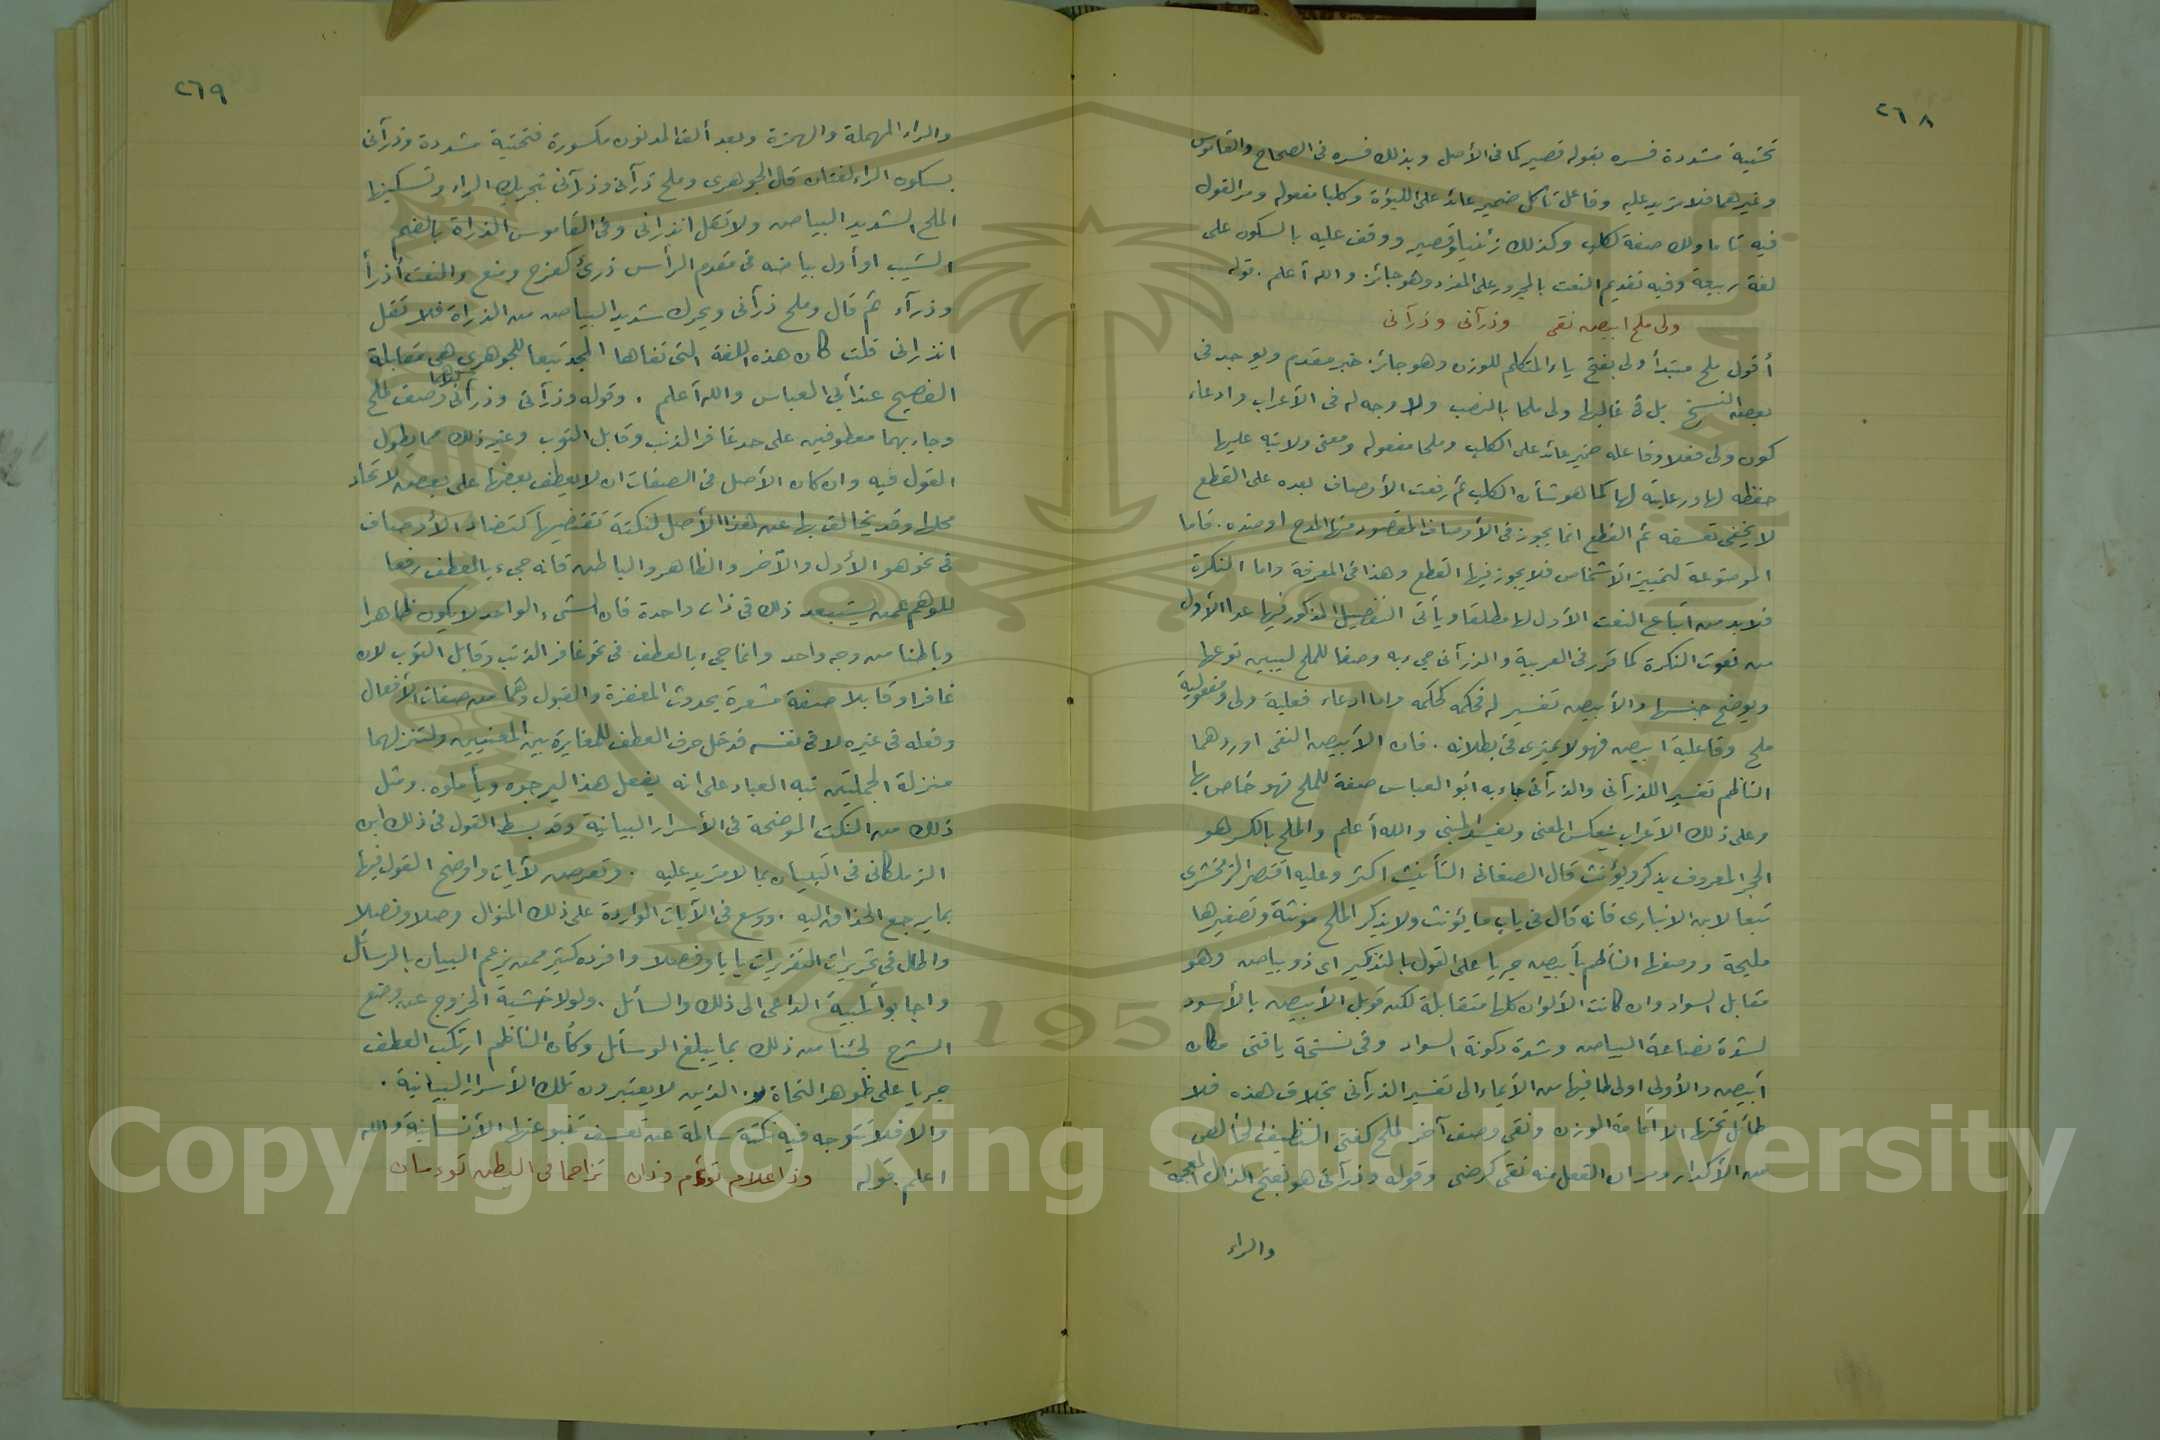 ٢٦٨
تحتية مشددة فسره بقوله قصير كما فى الأصل وبذلك فسره فى الصحاح والقاموس
وغيرهما فلا مزيد عليه وفاعل تأكل ضمير عائد على اللبؤة وكلبا مفعوله ومر القول
فيه تا ما ولك صفة كلب وكذلك زئنيا وقصير ووقف عليه بالسكون على
لغة ربيعة وفيه تقديم النعت بالمجرور على المفرد وهو جائز والله أعلم . قوله
ولى ملح ابيض نقى وذرآنى وذرآنى
أقول ملح مبتدأ ولى بفتح ياء المتكلم للوزن وهو جائز خبر مقدم ويوجد فى
بعض النسخ بل فى غالبها ولى ملحا بالنصب ولا وجه له فى الأعراب وادعاء
كون ولى فعلا وفاعله ضمير عائد على الكلب وملحا مفعوله ومعنى ولايته عليها
حفظه لها ورعايته لها كما هو شأن الكلب ثم رفعت الأوصاف بعده على القطع
لا يخفى تعسفه ثم القطع انما يجوز فى الأوصاف المقصود منها المدح او ضده . فاما
الموضوعة لتمييز الأشخاص فلا يجوز فيها القطع وهذا فى المعرفة واما النكرة
فلا بد من اتباع النعت الأول لها مطلقا ويأتى التفصيل المذكور فيها عدا الأول
من نعوت النكرة كما قرر فى العربية والذرآنى جىء به وصفا للملح ليبين نوعها
ويوضح جنسها والأبيض تفسير له فحكمه كحكمه واما ادعاء فعلية ولى ومفعولية
ملح وفاعلية ابيض فهو لا يمترى فى بطلانه . فان الأبيض النقى اوردهما
الناظم تفسيرا للذرآنى والذرآنى جاء به ابو العباس صفة للملح فهو خاص بها
وعلى ذلك الأعراب ينعكس المعنى ويفسد المبنى والله أعلم والملح بالكسر هو
الحجر المعروف يذكر ويؤنث قال الصغانى التأنيث اكثر وعليه اقتصر الزمخشرى
تبعا لابن الانبارى فانه قال فى باب ما يؤنث ولا يذكر الملح مؤنثة وتصغيرها
مليحة ووصفها الناظم بأبيض جريا على القول بالتذكير اى ذو بياض وهو
مقابل السواد وان كانت الألوان كلها متقابلة لكن قوبل الأبيض بالأسود
لشدة نصاعة البياض وشدة دكونة السواد وفى نسخة يافتى مكان
أبيض والأولى اولى لما فيها من الأيماء الى تفسير الذرآنى بخلاف هذه فلا
طائل تحتها الا اقامة الوزن ونقى وصف آخر لملح كغنى النظيف الخالص
من الأكدار ومر ان الفعل منه نقى كرضى وقوله وذرآنى هو بفتح الذال المعجمة
والراء
٢٦٩
والراء المهملة والهمزة وبعد ألف المد نون مكسورة فتحتية مشددة وذرآنى
بسكون الراء لغتان قال الجوهرى وملح ذرآنى وذرآنى بتحريك الراء وتسكينها
الملح الشديد البياض ولا تقل انذرانى وفى القاموس الذرأة بالضم
الشيب او أول بياضه فى مقدم الرأس ذرئ كفرح ومنع والنعت أذرأ
وذرآء ثم قال وملح ذرآنى ويحرك شديد البياض من الذرأة فلا تقل
انذرانى قلت كان هذه اللغة التى نفاها المجد تبعا للجوهرى هى مقابلة
الفصيح عند أبى العباس والله أعلم . وقوله وذرآنى وذرآنى وصف لملح
وجاء بهما معطوفين على حد غافر الذنب وقابل التوب وغير ذلك مما يطول
القول فيه وان كان الأصل فى الصفات ان لا يعطف بعضها على بعض لاتحاد
محلها وقد يخالف بها عن هذا الأصل لنكتة تقتضيها كتضاد الأوصاف
فى نحو هو الأول والآخر والظاهر والباطن فانه جىء بالعطف رفعا
للوهم عمن يستبعد ذلك فى ذات واحدة فان الشىء الواحد لا يكون ظاهرا
وباطنا من وجه واحد وانما جىء بالعطف فى نحو غافر الذنب وقابل التوب لان
غافرا وقابلا صفة مشعرة بحدوث المغفرة والقبول وهما من صفات الأفعال
وفعله فى غيره لا فى نفسه فدخل حرف العطف للمغايرة بين المعنيين ولتنزلهما
منزلة الجملتين نبه العباد على انه يفعل هذا ليرجوه ويأملوه . ومثل
ذلك من النكت الموضحة فى الأسرار البيانية وقد بسط القول فى ذلك ابن
الزملكانى فى التبيان بما لا مزيد عليه . وتعرض لآيات واوضح القول فيها
بما يرجع الحذاق اليه . ووسع فى الآيات الواردة على ذلك المنوال وصلا وفصلا
واطال فى تحريرات التقريرات بابا وفصلا وافرده كثير ممن يزعم البيان بالرسائل
واجابوا تلبية الداعى الى ذلك والسائل . ولولا خشية الخروج عن وضع
الشرح لجئنا من ذلك بما يبلغ الوسائل وكأن الناظم ارتكب العطف
جريا على ظواهر النحاة . الذين لا يعتبرون تلك الأسرار البيانية .
والا فلا تتوجه فيه نكتة سالمة عن تعسف تنبو عنها الأنسانية والله
اعلم . قوله وذا غلام توءم وذان تزاحما فى البطن توءمان
1957
Copyright © King Saud University